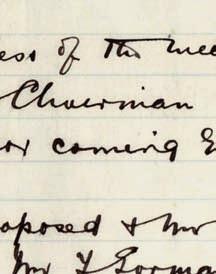 ess of the mee
Chairman
or coming E
oposed & Mr
Mr T Gorma